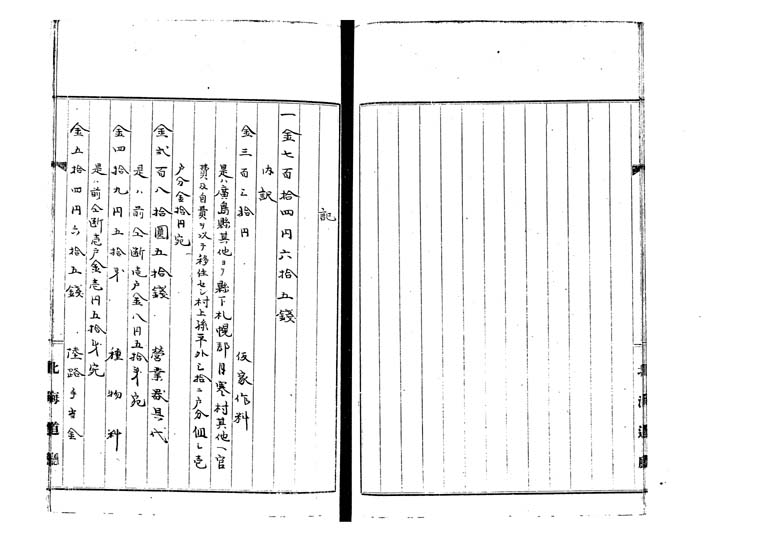 記
一金七百拾四円六拾五錢
内訳
金三百三拾円 仮家作料
是ハ廣島縣其他ヨリ縣下札幌郡月寒村其他ヘ官
費及自費ヲ以テ移住セシ村上孫平外三拾二戸分但し壱
戸分金拾円宛
金弐百八拾圓五拾錢 營業器具代
是ハ前仝断壱戸金八円五拾銭宛
金四拾九円五拾銭 種物料
是ハ前仝断壱戸金壱円五拾銭宛
金五拾四円六拾五錢 陸路手当金
北海道廳
北海道廳